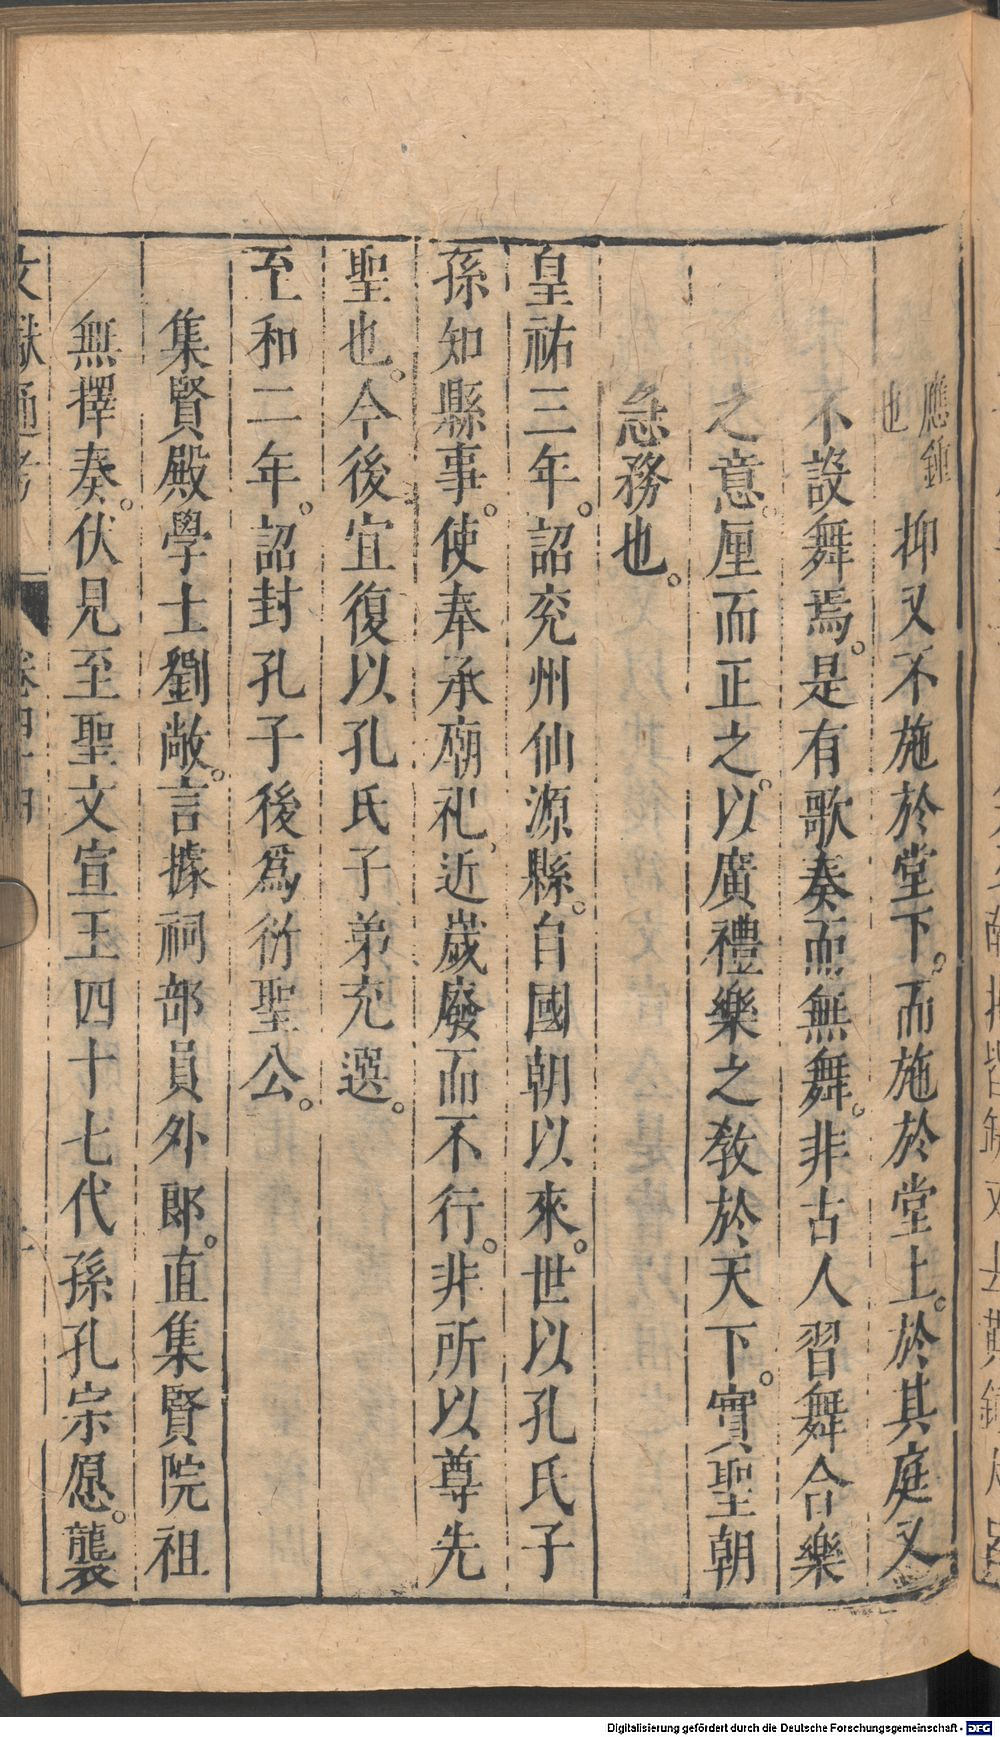 應鍾
也
抑又不施於堂下。而施於堂上。於其庭又
不設舞焉。是有歌奏而無舞。非古人習舞合樂
之意。厘而正之。以廣禮樂之敎於天下。實聖朝
急務也。
皇祐三年。詔兖州仙源縣。自國朝以來。世以孔氏子
孫知縣事。使奉承廟礼、近歲廢而不行。非所以尊先
聖也。今後宜復以孔氏子弟充選。
至和二年。詔封孔子後爲衍聖公。
集賢殿學士劉敞。言據祠部員外郎。直集賢院祖
無擇奏。伏見至聖文宣王四十七代孫孔宗愿。襲
文獻通考
卷四十四
Digitalisierung gefördert durch die Deutsche Forschungsgemeinschaft - DFG